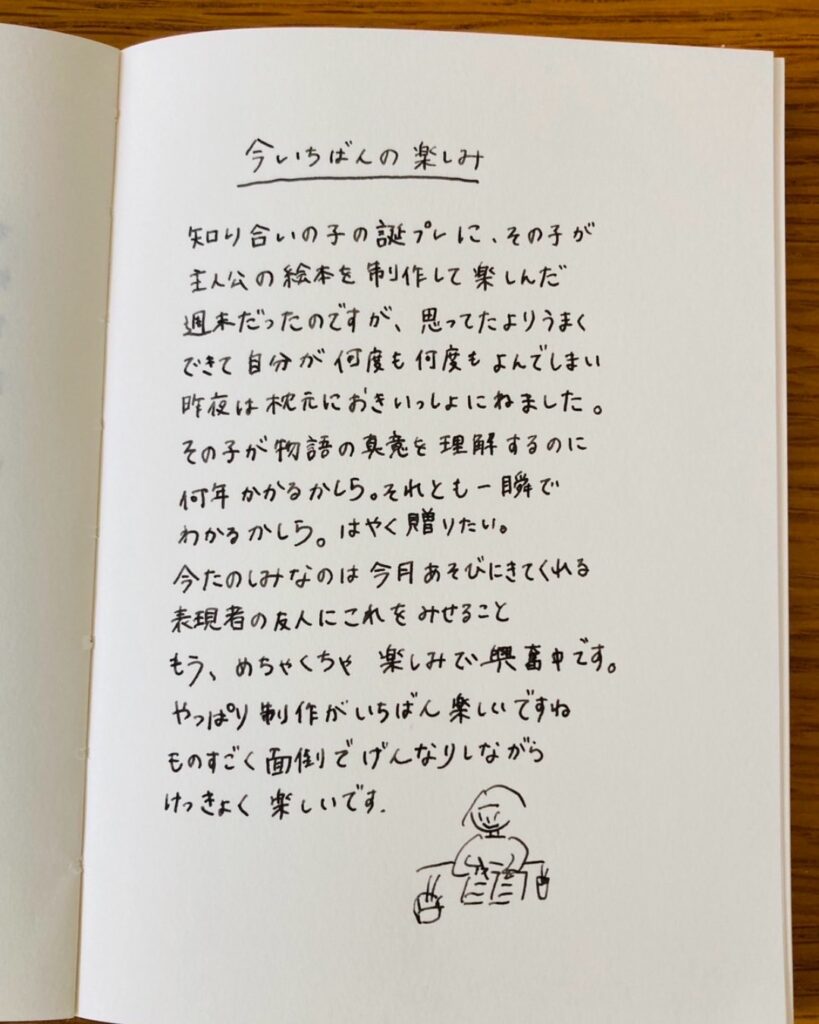 今いちばんの楽しみ
知り合いの子の誕プレに、その子が
主人公の絵本を制作して楽しんだ
週末だったのですが、思ってたよりうまく
できて自分が何度も何度もよんでしまい
昨夜は枕元におきいっしょにねました。
その子が物語の真意を理解するのに
何年かかるかしら。それとも一瞬で
わかるかしら。はやく贈りたい。
今たのしみなのは今月あそびにきてくれる
表現者の友人にこれをみせること
もう、めちゃくちゃ楽しみで興奮中です。
やっぱり制作がいちばん楽しいですね
ものすごく面倒でげんなりしながら
けっきょく楽しいです.